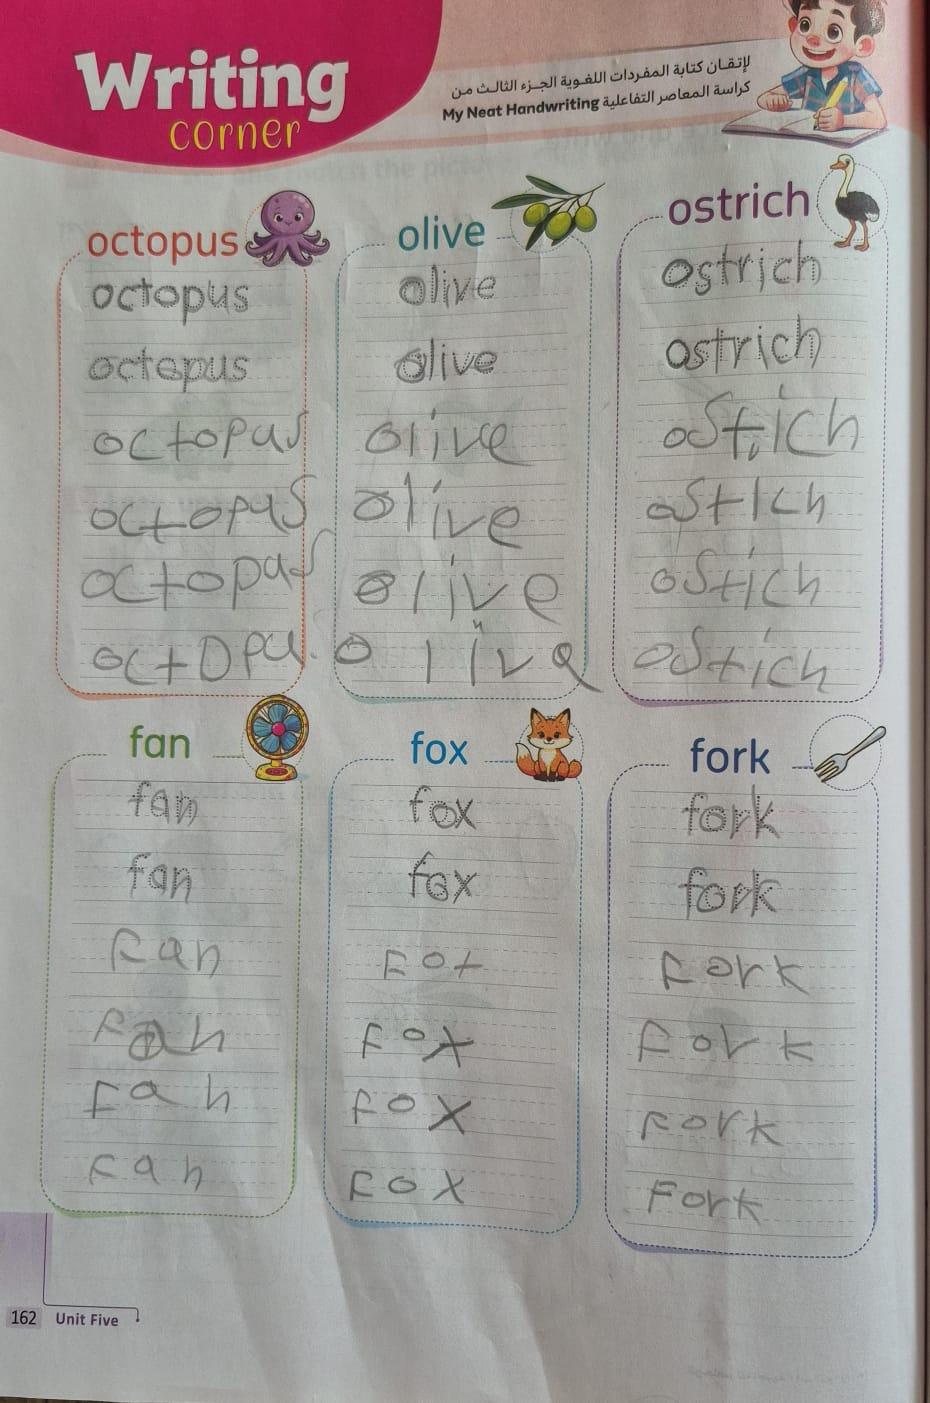 Writing
corner
لإتقان كتابة المفردات اللغوية الجزء الثالث من
كراسة المعاصر التفاعلية My Neat Handwriting
octopus
octopus
octopus
octopus
octopus
octopus
octopu
olive
olive
olive
olive
olive
olive
olive
ostrich
ostrich
ostrich
ostich
ostich
ostich
ostich
fan
fan
fan
fan
fan
fan
fan
fox
fox
fox
fot
fox
fox
fox
fork
fork
fork
fork
fork
fork
Fork
162 Unit Five